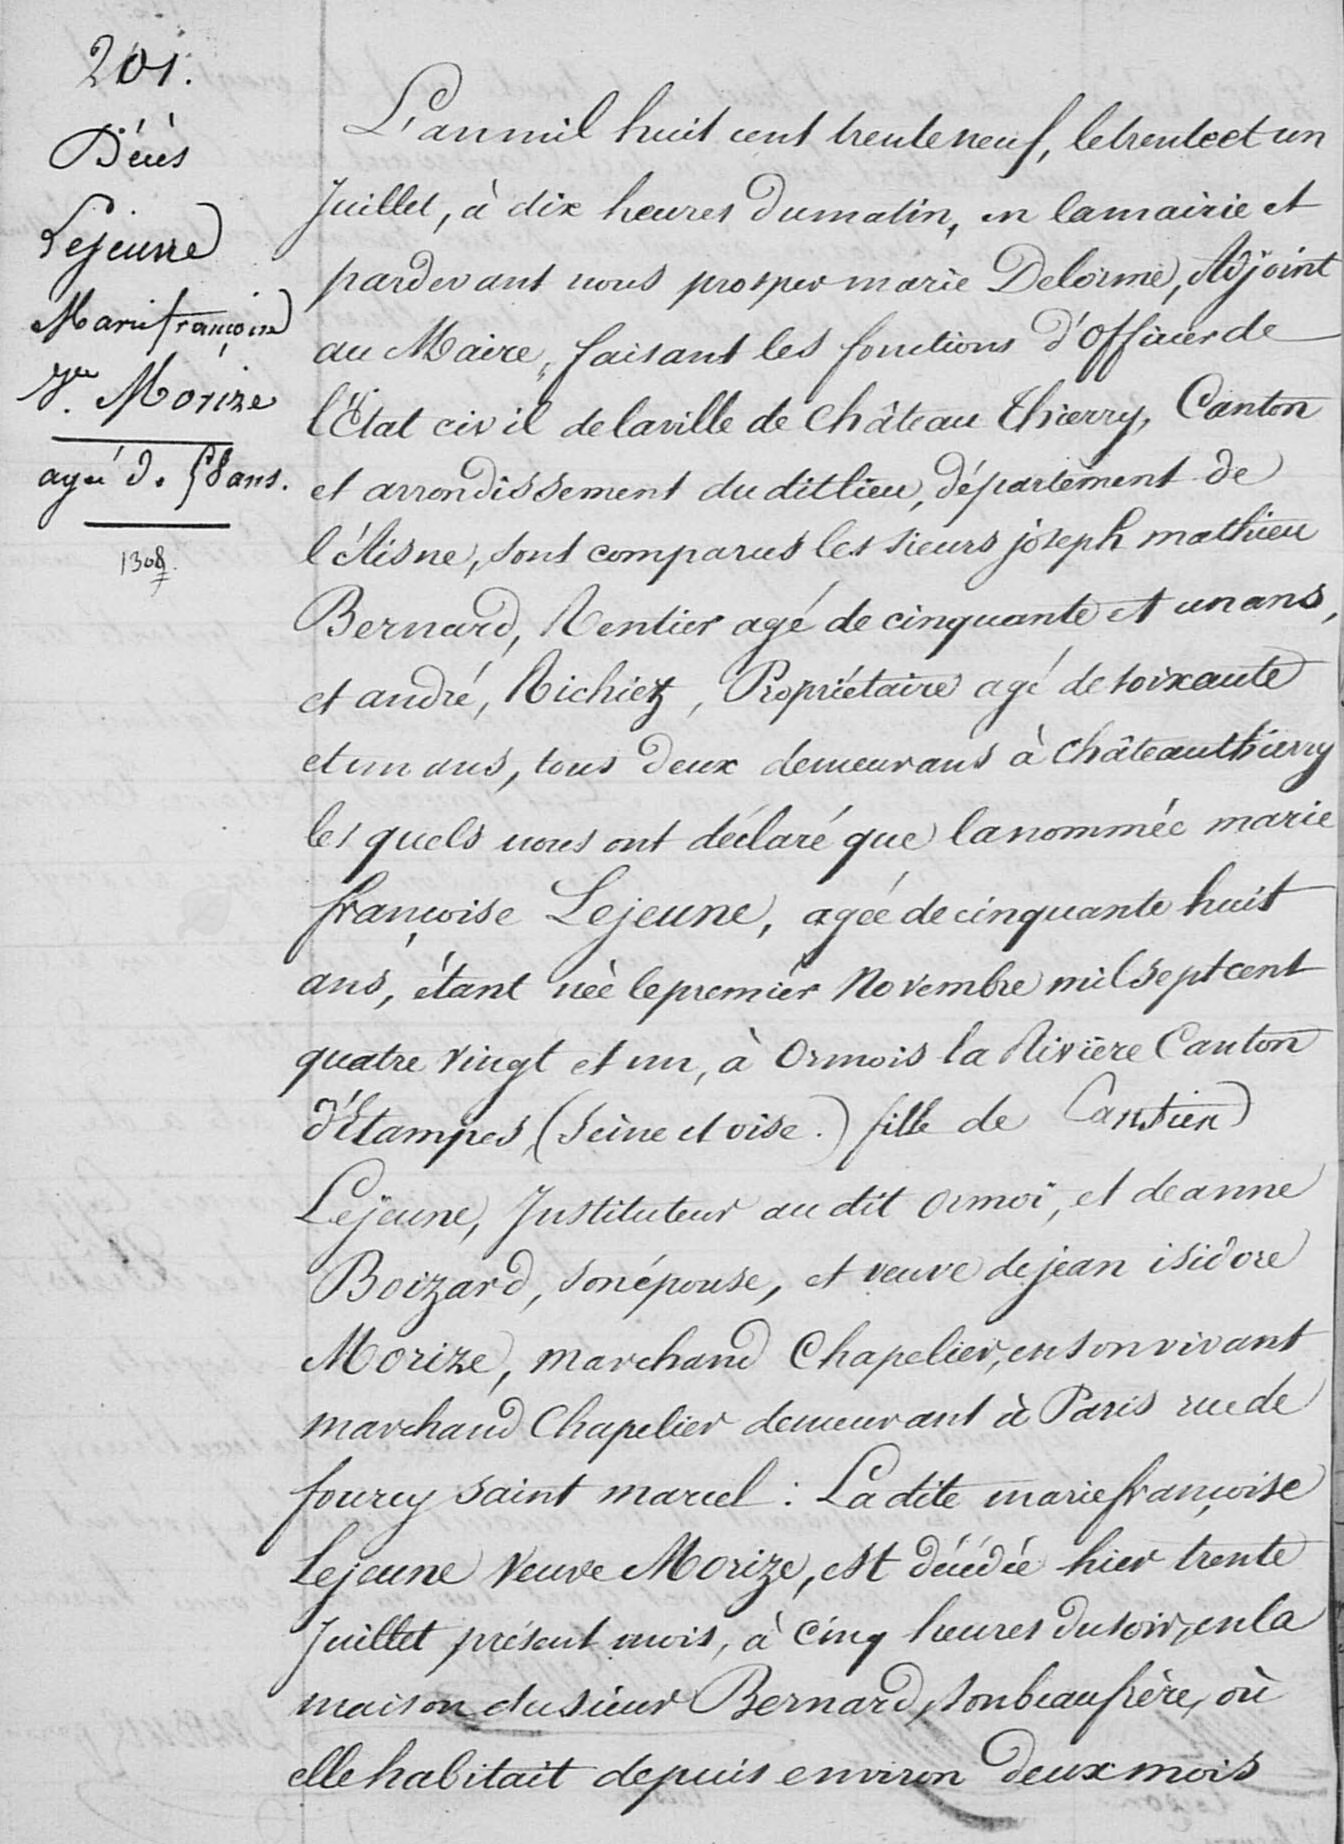 201.
Décès
Lejeune
Marie françoise
Ve. Morize
agée de 58 ans.
1308.
L'an mil huit cent trente neuf, le trente et un
Juillet, à dix heures du matin, en la mairie et
pardevant nous prosper marie Delorme, Adjoint
au Maire, faisant les fonctions d'Officier de
l'État civil de la ville de Château Thierry, Canton
et arrondissement du dit lieu, département de
l'Aisne, sont comparus les sieurs joseph mathieu
Bernard, Rentier agé de cinquante et un ans,
et andré, Richiez, Propriétaire agé de soixante
et un ans, tous deux demeurans à Château thierry
les quels nous ont déclaré que la nommée marie
françoise Lejeune, agée de cinquante huit
ans, étant née le premier Novembre mil sept cent
quatre vingt et un, à Ormois la Rivière Canton
d'Étampes, (Seine et oise.) fille de Cantien
Lejeune, Instituteur au dit Ormoi, et de anne
Boizard, son épouse, et veuve de jean isidore
Morize, marchand Chapelier, en son vivant
marchand Chapelier demeurant à Paris rue de
fourcy saint marcel : La dite marie françoise
Lejeune Veuve Morize, est décédée hier trente
Juillet présent mois, à cinq heures du soir, en la
maison du sieur Bernard, son beau frère, où
elle habitait depuis environ deux mois